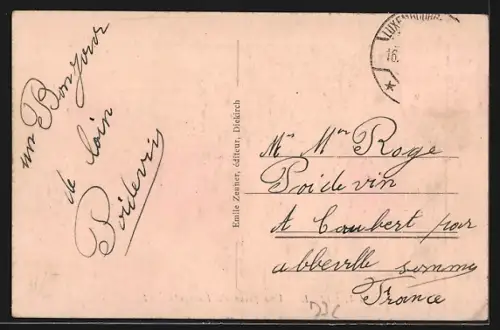 un Bonjour
de loin
Poidevin
Emile Zenner, éditeur, Diekirch
LUXEMBOURG
16.
Mr Roge
Poidevin
A Caubert par
abbeville somme
France